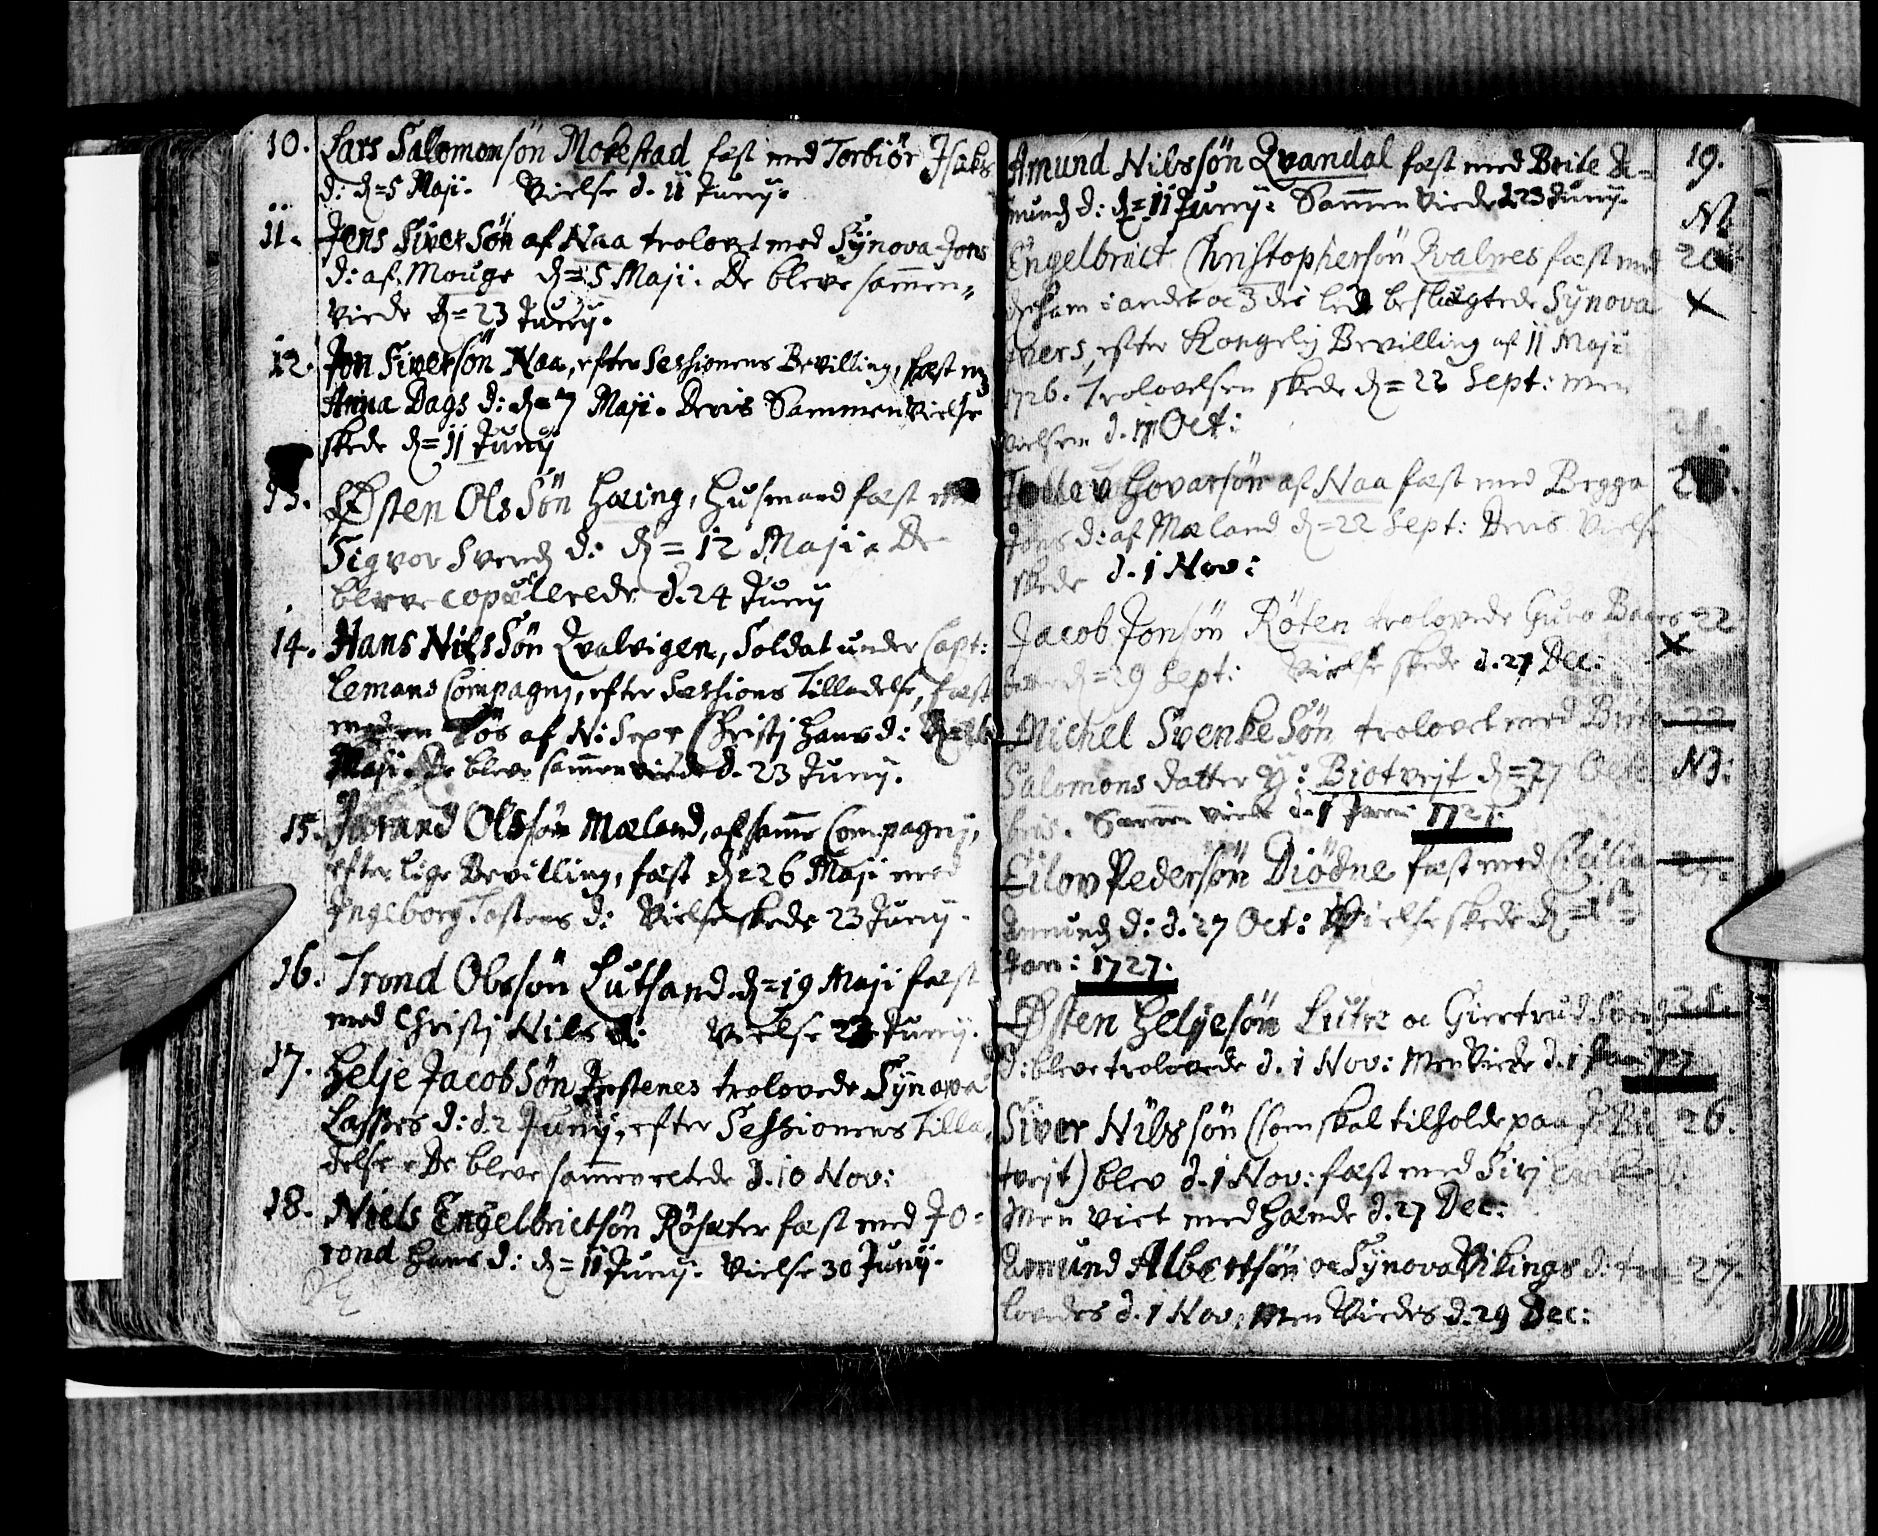 10. Lars Salomonsön Mokestad fæst med Torbiör Isaks
d: d= 5 Maji. Vielse d. 11 Junij.
11. Jens Siver Sön af Naa trolovet med Synova Jons
d: af Mouge d= 5 Maji. De bleve sam̄en„
viede d= 23 Junij.
12. Jon Siversön Naa, efter Sessionens Bevilling, fæst m
Anna Dags d: d= 7 Maji. Deris Sammen Vielse
skede d= 11 Junij
13. Østen Ols Sön Hæing, Husmand fæst
Sigvor Svends d: d= 12 Maji. De
bleve copulerede d. 24 Junij
14. Hans Nils Sön Qvalvigen, Soldat under Capt:
Lemans Compagnj, efter Sessions Tilladelse, fæst
med en Tös af N: Sexe Christj Hans d:
Maji. De bleve sam̄en viede d. 23 Junij.
15. Olssön Mæland, af sam̄e Compagnj,
efter lige Bevilling, fæst d= 26 Maji med
Ingeborg Tostens d: Vielse skede 23 Junij.
16. Trond Olssön Lutsand d= 19 Maji fæst
med Christj Nils d: Vielse 23 Junij.
17. Helje Jacob Sön Jestenes trolovede Synova
Lasses d: d. 2 Junij, efter Sessionens Tilla
delse. De bleve sam̄envelede d. 10 Nov:
18. Niels Engelbrictsön Rösæter fæst med Jo=
rond Hans d: d= 11 Junij. Vielse 30 Junij.
Amund Nilssön Qvandal fæst med Brite A= 19.
munds d: d= 11 Junij. Sam̄en Viede d 23 Junij.
N
Engelbrict Christophersön Qvalnes fæst med 20
ham i andet oc 3die led beslægtede Synova X
Ivers, efter Kongelig Bevilling af 11 Maji
1726. Trolovelsen skede d= 22 Sept: men
Vielsen d. 17 Oct:
21.
Hovarsön af Naa fæst med Brgga
Jons d: af Mæland d= 22 Sept: Deris Vielse
skede d. 1 Nov:
Jacob Jonsön Röten trolovede Guro Baars 22
d= 29 Sept: Vielse skede d. 27 Dec: X
Michel Svenke Sön trolovet med Brite
Salomons datter Biotvejt d= 27 Octo N3:
bris. Sam̄en viede d. 1 Janu: 1727.
Eilov Pedersön Diödne fæst med Cicilia 24.
Amunds d: d. 27 Oct: Vielse skede d= 1
Jan: 1727.
Østen Heljesön Lutre oc Giertrud 25.
d: bleve trolovede d. 1 Nov: Men Viede d. 1 Jan: 1727
Siver Nilssön (som skal tilholde paa 26.
tvejt) blev d. 1 Nov: fæst med Sirj
Men viet med Hænde d. 27 Dec:
Amund Albertsön oc Synova Vikings d: tro= 27.
lovedes d. 1 Nov: Men Viedes d. 29 Dec: